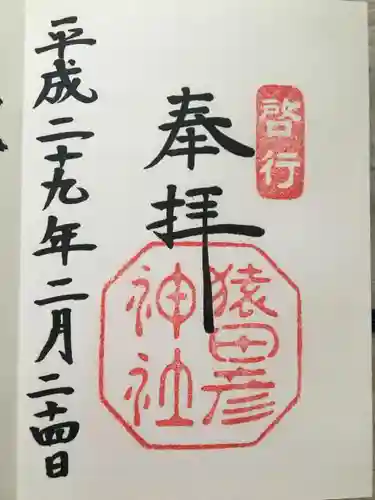 啓行
奉拝
猿田彦
神社
平成二十九年二月二十四日